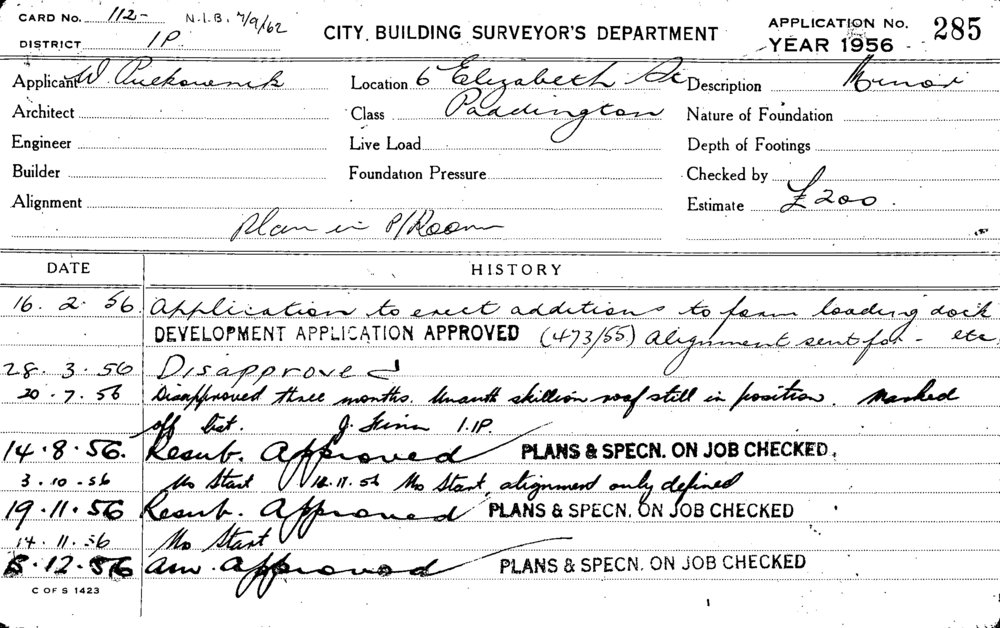 CARD No. 112- N.I.B. 7/9/62
CITY BUILDING SURVEYOR'S DEPARTMENT
APPLICATION No. 285
DISTRICT 1P.
YEAR 1956
Applicant W.
Location 6 Elizabeth St
Description Minor
Architect
Class Paddington
Nature of Foundation
Engineer
Live Load
Depth of Footings
Builder
Foundation Pressure
Checked by
Alignment
Estimate £200.
plan in P/Room
DATE
HISTORY
16. 2. 56. Application to erect additions to form loading dock
DEVELOPMENT APPLICATION APPROVED (473/55) Alignment sent for - etc.
28. 3. 56 Disapproved
20. 7. 56 Disapproved three months. Unauth skillion roof still in position. Marked
off list. J. 1.1P.
14. 8. 56. Resub. Approved PLANS & SPECN. ON JOB CHECKED.
3. 10. 56 No Start 12. 11. 56 No Start, alignment only defined
19. 11. 56 Resub. Approved PLANS & SPECN. ON JOB CHECKED
14. 11. 56 No Start
5. 12. 56 am. approved PLANS & SPECN. ON JOB CHECKED
C OF S 1423